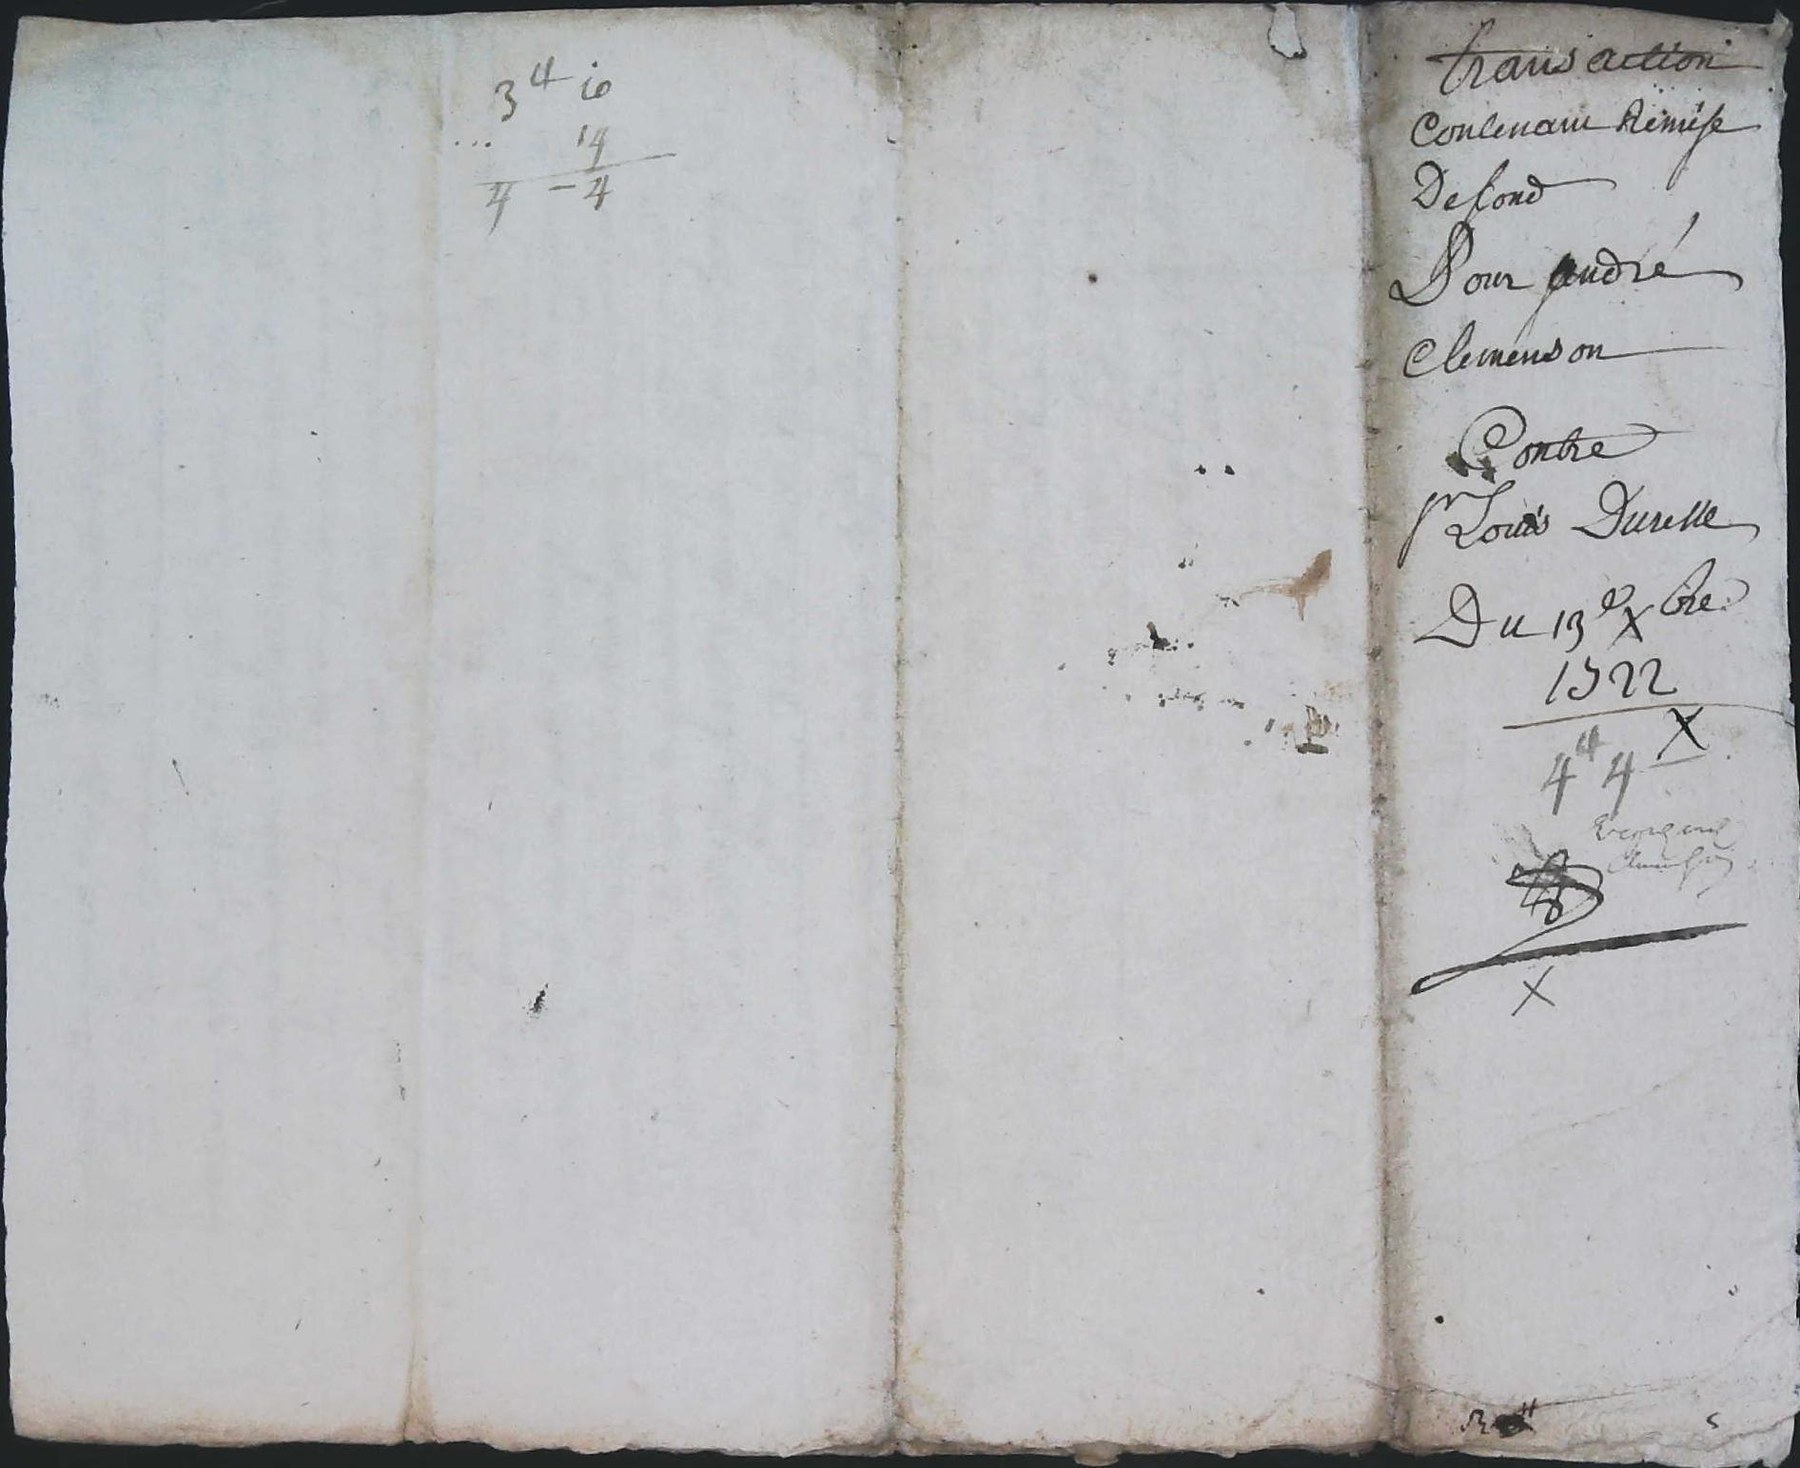 3 ₶ 10
14
4 - 4
transaction
Contenant Remise
De fond
Pour andré
Clemenson
Contre
sr Louis Durelle
Du 13e Xbre
1722
X
4 ₶ 4
X